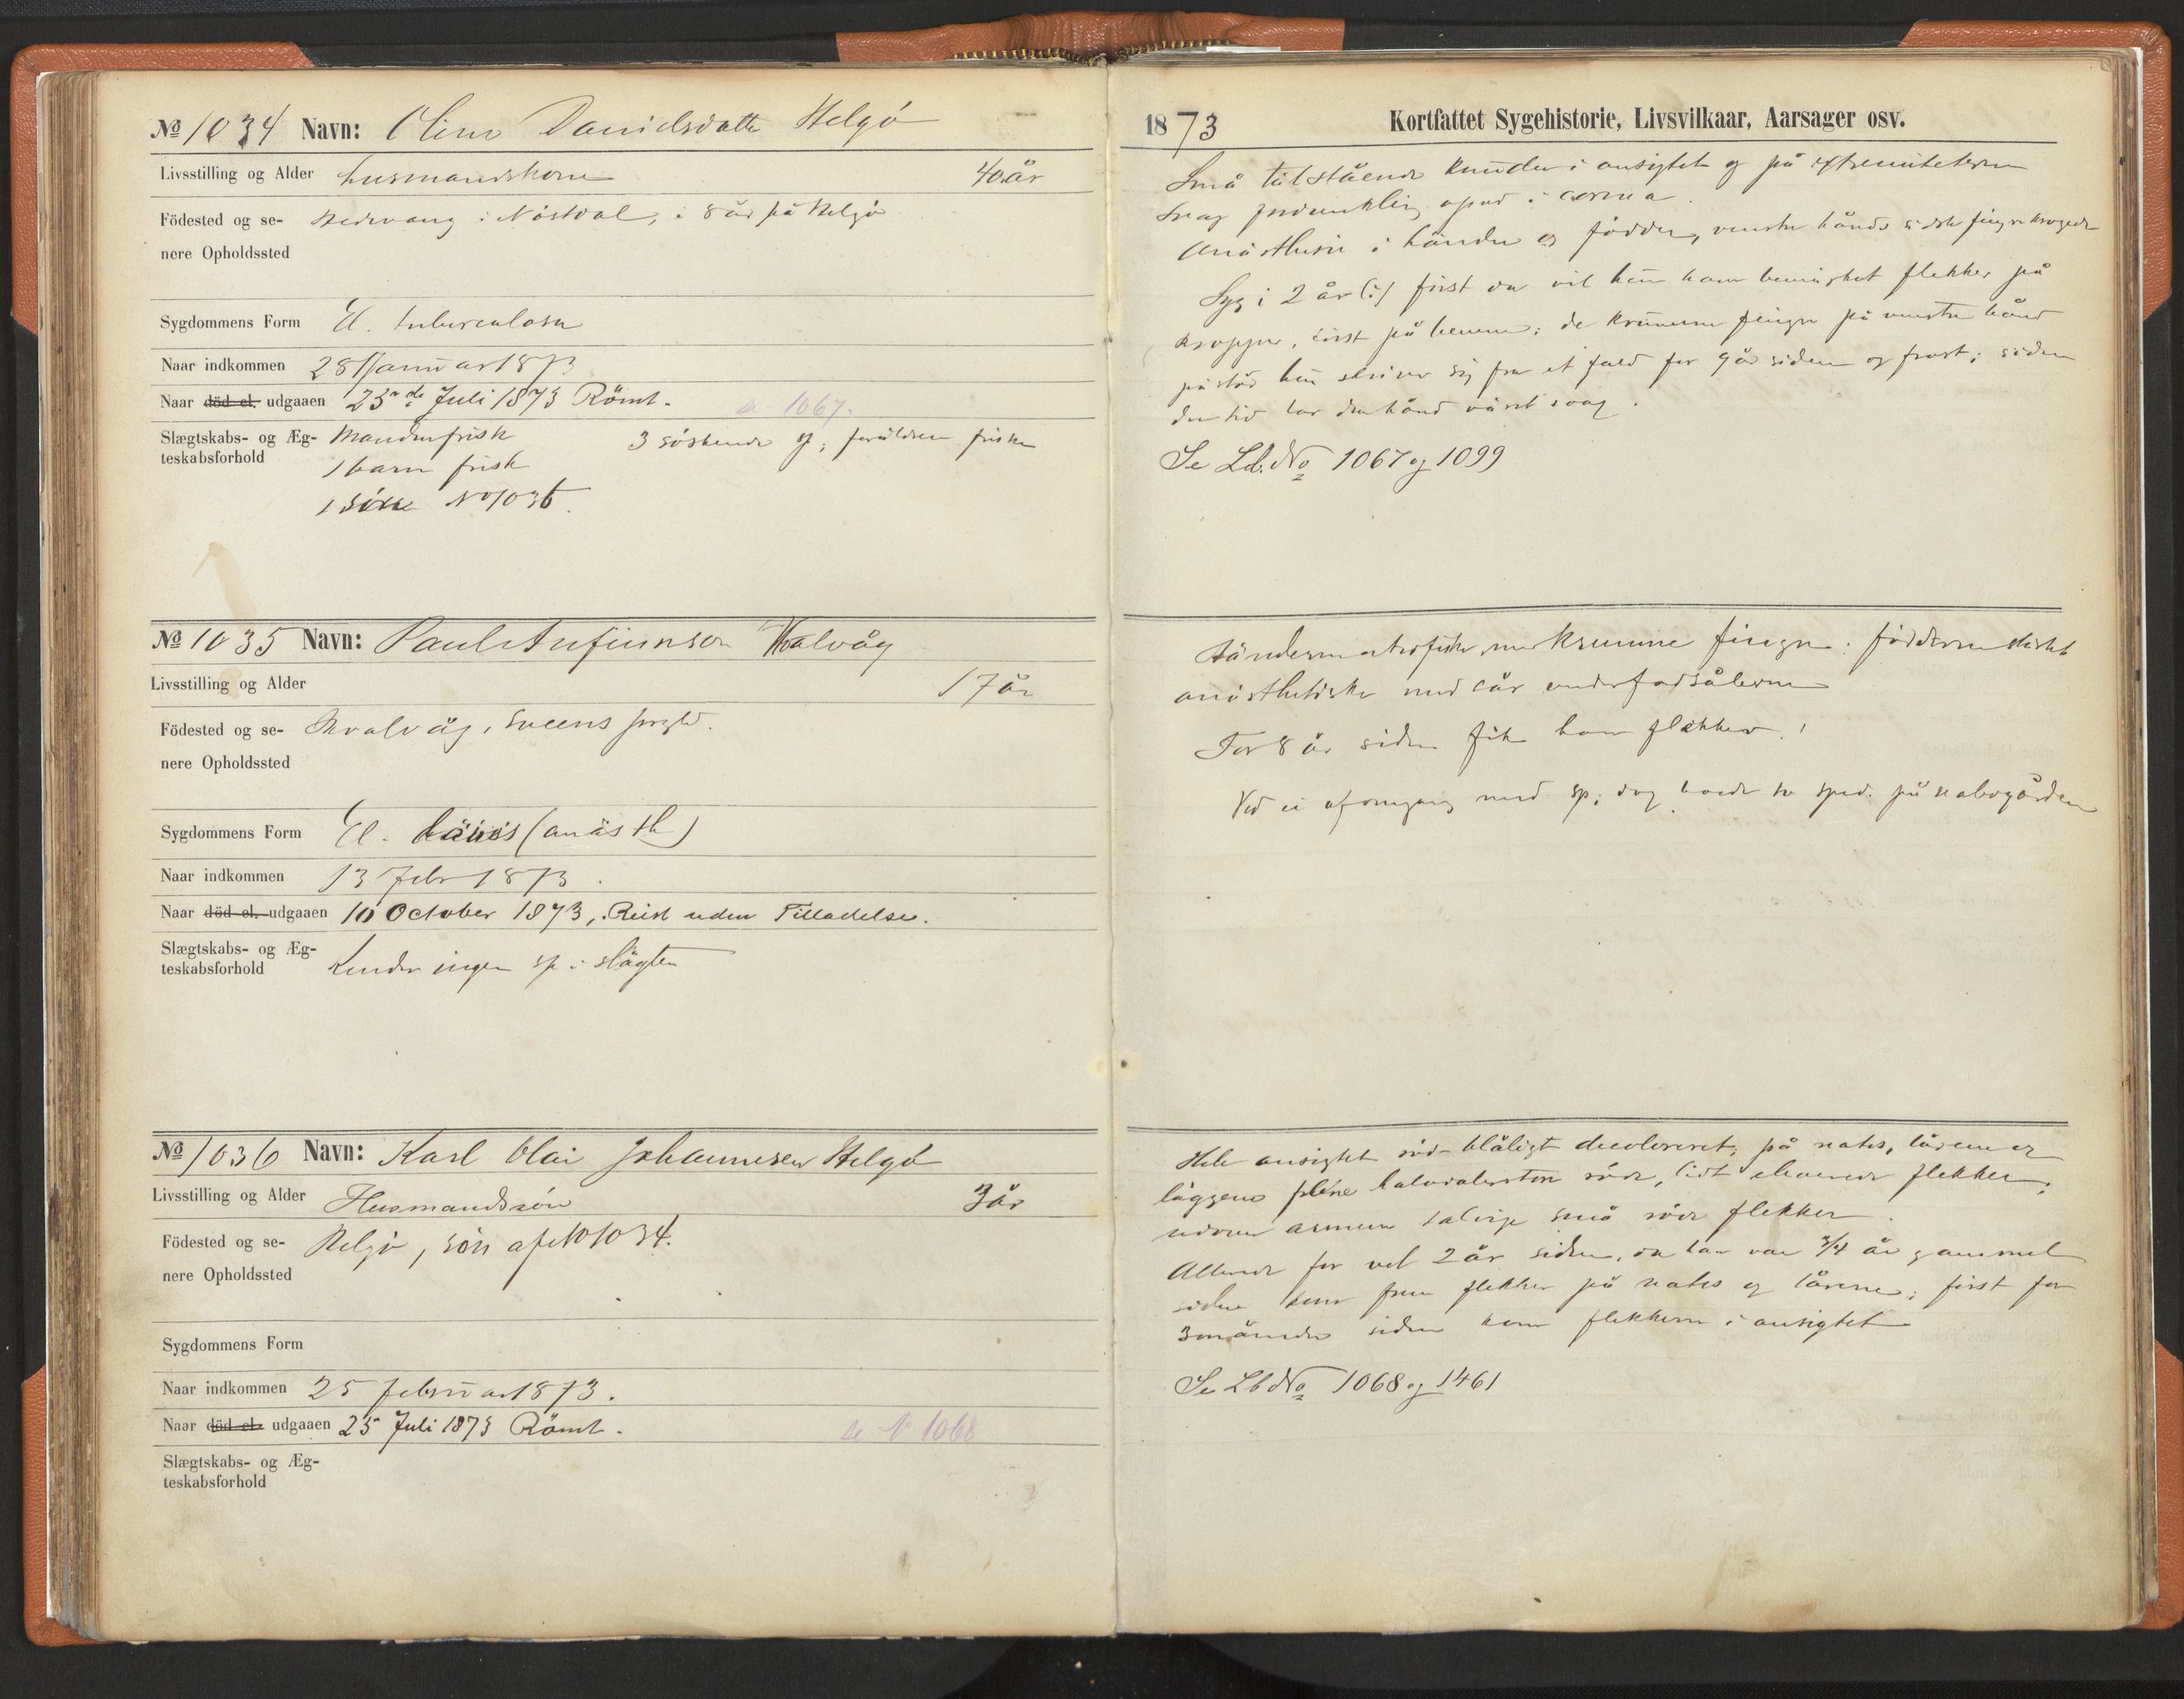 № 1034 Navn: Oline Danielsdatter Helgö
Livsstilling og Alder husmandskone 40 år
Födested og se- i Nästdal, i 8 år på Helgö
nere Opholdssted
Sygdommens Form El. tuberculosa
Naar indkommen 28 Januar 1873
Naar död el. udgaaen 23de Juli 1873 Römt. se 1067.
Slægtskabs- og Æg- Manden frisk 3 söskende og forældrene friske
teskabsforhold 1 barn frisk
1 sön No 1036.
№ 1035 Navn: Paul Anfinnsen Kvalvåg
Livsstilling og Alder 17 år
Födested og se- Kvalvåg, Sveens prgld.
nere Opholdssted
Sygdommens Form El. lävis (anästh)
Naar indkommen 13 Febr 1873.
Naar död el. udgaaen 10 October 1873, Reist uden Tilladelse.
Slægtskabs- og Æg- Kender ingen sp. i slägten
teskabsforhold
№ 1036 Navn: Karl Olai Johannesen Helgö
Livsstilling og Alder Husmandssön 3 år
Födested og se- Helgö, sön af No 1034.
nere Opholdssted
Sygdommens Form
Naar indkommen 25 februar 1873.
Naar död el. udgaaen 25 Juli 1873 Römt. se N 1068
Slægtskabs- og Æg-
teskabsforhold
1873 Kortfattet Sygehistorie, Livsvilkaar, Aarsager osv.
Små tätstående knuder i ansigtet og på extremiteterne
i cornea.
Anästhesie i händer og födder, venstre hånds sidste fingre krogede
Syg i 2 år (:) först da vil hun have bemärket flekker på
kroppen, först på benene; de krumme fingre på venstre hånd
påstår hun skriver sig fra et fald for 9 år siden og frost; siden
den tid har den hånd väret svag.
Se Lb. No 1067 og 1099
Händerne atrofiske med krumme fingre; födderne stärkt
anästhetiske med sår under fodsålerne
For 8 år siden fik han flekker.
Ved ei af omgang med sp; dog var der to sped. på nabogården
Hele ansigtet röd-blåligt decoloreret; på nates, lårene og
läggene röde, lidt eleverede flekker;
udover armene talrige små röde flekker.
Allerede for vel 2 år siden, da han var 3/4 år gammel
kom frem flekker på nates og lårene; först for
3 måneder siden kom flekkerne i ansigtet
Se Lb No 1068 og 1461